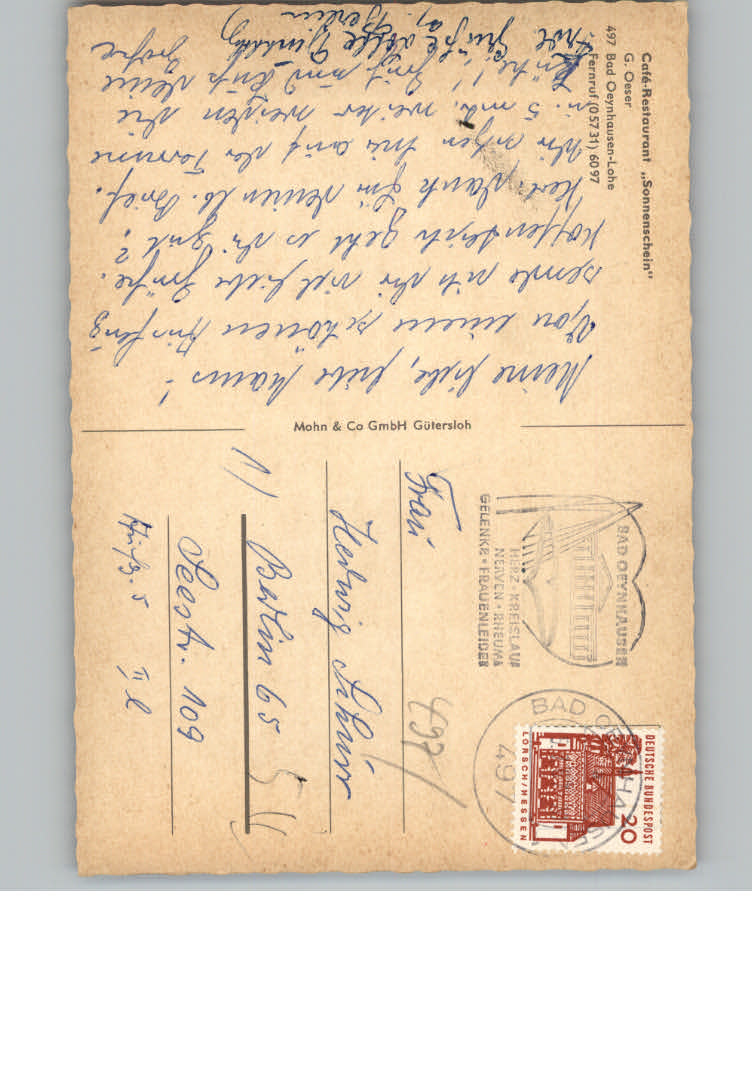 Café-Restaurant „Sonnenschein"
G. Oeser
497 Bad Oeynhausen-Lohe
Fernruf (05731) 6097
Meine liebe, gute Mama!
Von einem schönen Ausflug
sende ich Dir viel liebe Grüße.
Hoffentlich geht es Dir gut?
Herzl. Dank für Deinen lb. Brief.
Wir sitzen hier auf der Terrasse
u. 5 weiter
Gruß und Kuß Deine
Herzl. Grüße
Berlin
Mohn & Co GmbH Gütersloh
BAD OEYNHAUSEN
HERZ · KREISLAUF
NERVEN · RHEUMA
GELENKE · FRAUENLEIDEN
BAD OEYNHAUSEN
497
DEUTSCHE BUNDESPOST
20
LORSCH/HESSEN
497
Frau
Hedwig Schurr
1/ Berlin 65
Seestr. 109
Aufg. 5 II l